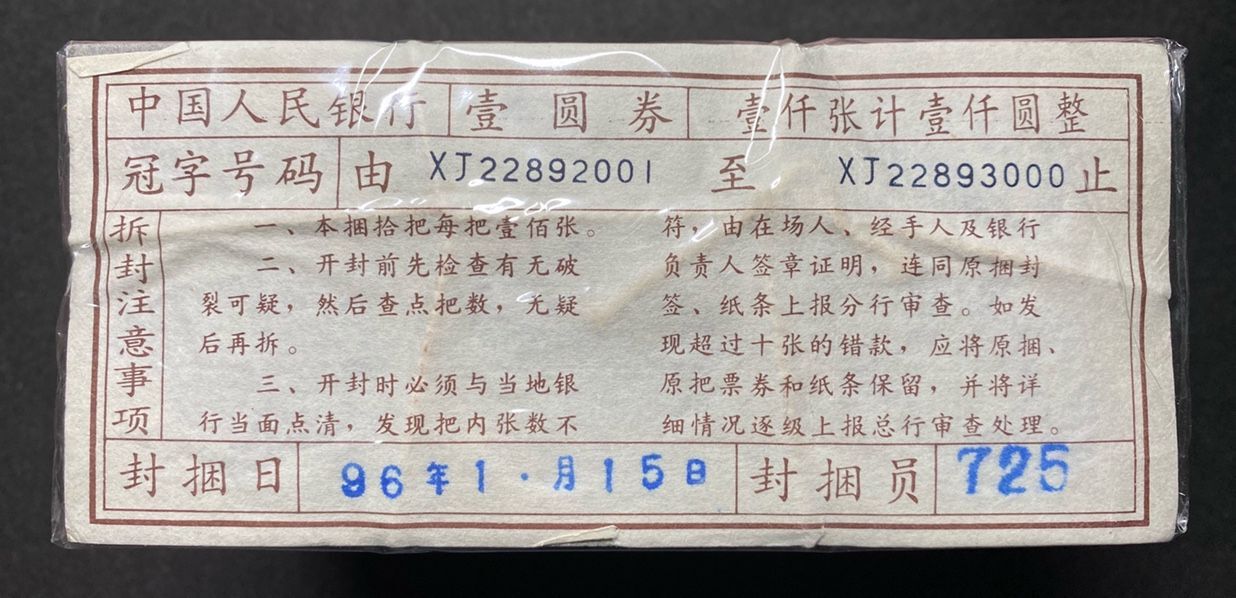 中国人民银行 壹圆券 壹仟张计壹仟圆整
冠字号码 由 XJ22892001 至 XJ22893000 止
拆封注意事项
一、本捆拾把每把壹佰张。
二、开封前先检查有无破
裂可疑，然后查点把数，无疑
后再拆。
三、开封时必须与当地银
行当面点清，发现把内张数不
符，由在场人、经手人及银行
负责人签章证明，连同原捆封
签、纸条上报分行审查。如发
现超过十张的错款，应将原捆、
原把票券和纸条保留，并将详
细情况逐级上报总行审查处理。
封捆日 96年1·月15日 封捆员 725